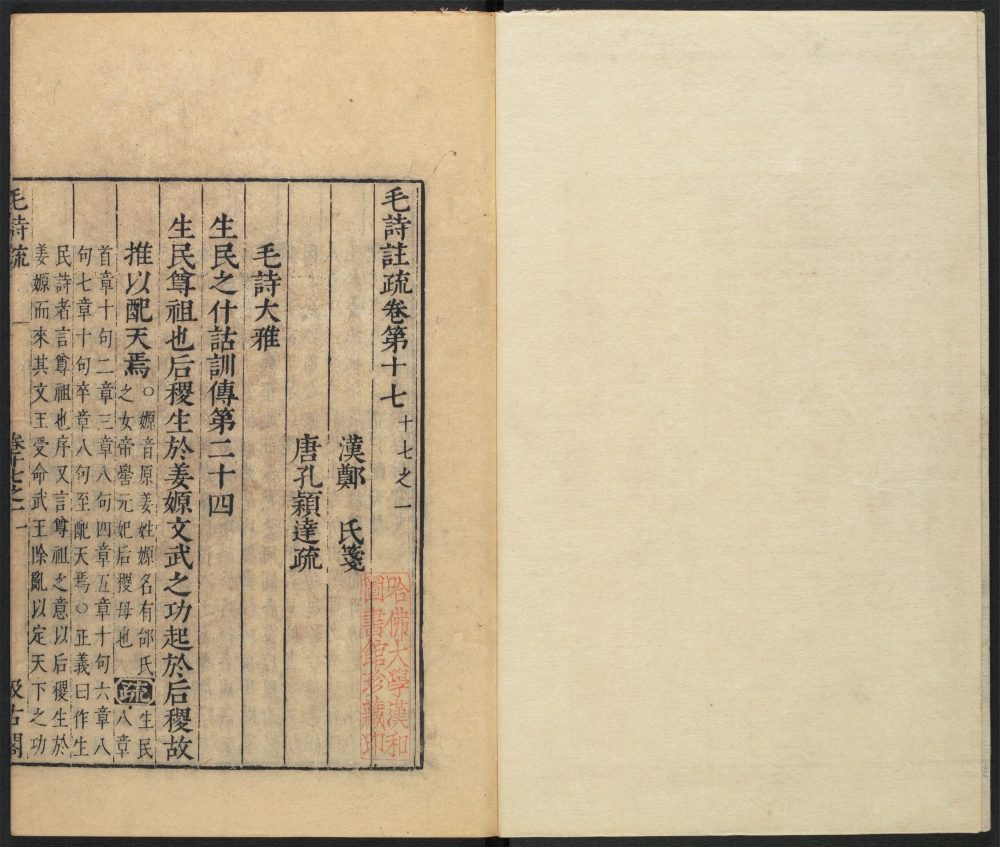 毛詩註疏卷第十七 十七之一
漢鄭 氏箋
唐孔穎達疏
毛詩大雅
生民之什詁訓傳第二十四
生民尊祖也后稷生於姜嫄文武之功起於后稷故
推以配天焉○嫄音原姜姓嫄名有邰氏
之女帝嚳元妃后稷母也
疏
生民
八章
首章十句二章三章八句四章五章十句六章八
句七章十句卒章八句至配天焉○正義曰作生
民詩者言尊祖也序又言尊祖之意以后稷生於
姜嫄而來其文王受命武王除亂以定天下之功
毛詩疏
卷十七之一
汲古閣
哈佛大學漢和
圖書館珍藏印